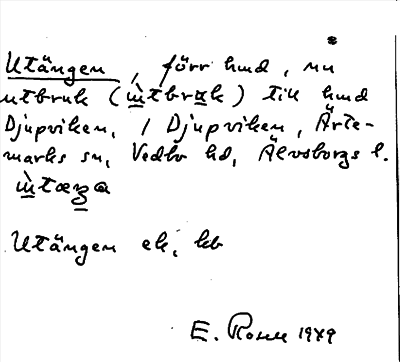 Utängen, förr hmd, nu
utbruk (ùtbruk) till hmd
Djupviken, / Djupviken, Ärte-
marks sn, Vedbo hd, Älvsborgs l.
Utängen ek, kb
E. Rosell 1949